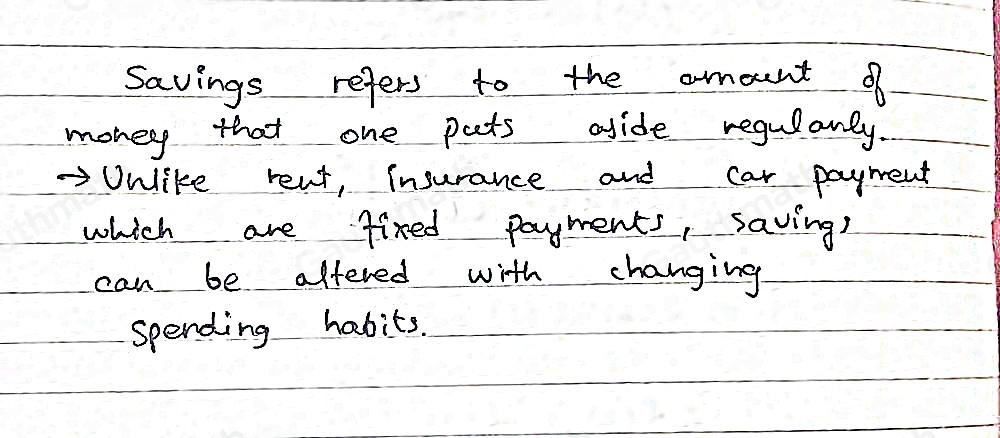 Savings refers to the amount of
money that one puts aside regularly.
→ Unlike rent, insurance and car payment
which are fixed payments, savings
can be altered with changing
spending habits.